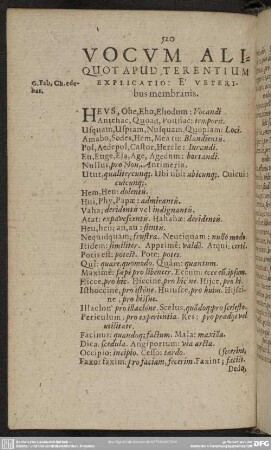 510
VOCVM ALI-
QUOT APUD TERENTIUM
EXPLICATIO: E' VETERI-
bus membranis.
G. Fab. Ch. ede-
bat.
HEVS, Ohe, Eho, Ehodum: Vocandi.
Antehac, Quoad, Posthac: temporis.
Usquam, Uspiam, Nusquam, Quopiam: Loci.
Amabo, Sodes, Hem, Mea tu: Blandientis.
Pol, Aedepol, Castor, Hercle: Iurandi.
En, Euge, Eia, Age, Agedum: hortandi.
Nullus, pro Non, Antimeria.
Utut, qualitercunq; Ubi ubi: ubicunq; Cuicui:
cuicunq;
Hem, Heu: dolentis.
Hui, Phy, Papæ: admirantis.
Vaha: deridentis vel indignantis.
Atat: expavescentis. Hahahæ: deridentis.
Heu, hei, au, au: flentis.
Nequidquam, frustra. Neutiquam: nullo modo.
Itidem: similiter. Apprimè: valdè. Atqui, certè.
Potis est: potest. Pote: potes.
Qui: quare, quomodo. Quàm: quantum.
Maximè: sæpè pro libenter. Eccum: ecce eũ, ipsum.
Hicce, pro hic. Hiccine, pro hic ne. Hice, pro hi.
Isthoccine, pro istõne. Huiusce, pro huius. Hiscine,
ne, pro hisne.
Illacion' pro illacone. Scelus, quãdoq; pro scelesto.
Periculum: pro experientia. Res: pro præda, vel
utilitate.
Facinus: quandoq; factum. Mala: maxilla.
Dica: scedula. Angiportum: via arcta.
Occipio: incipio. Cesso: tardo.
(fecerint,
Faxo: faxim: pro faciam, fecerim. Faxint; fecit.
Dedo,